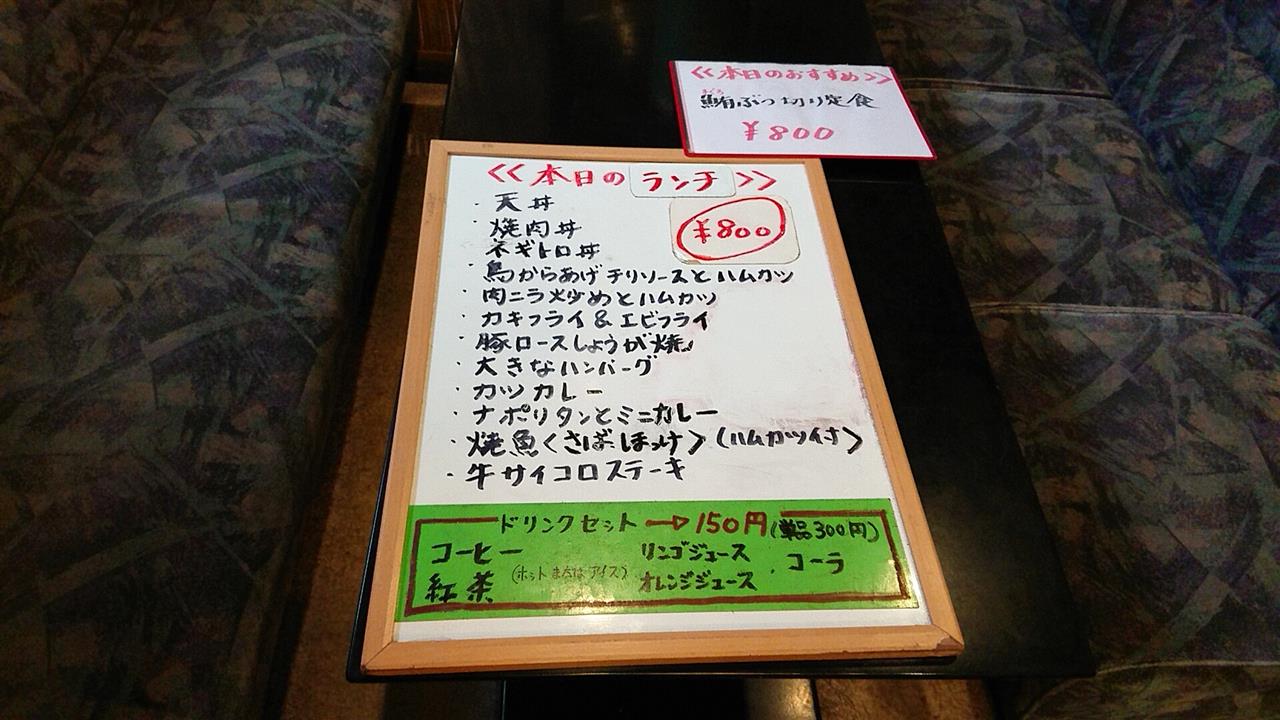 <<本日のおすすめ>>
まぐろ
鮪ぶつ切り定食
¥800
<<本日のランチ>>
¥800
・天丼
・焼肉丼
ネギトロ丼
・鳥からあげチリソースとハムカツ
・肉ニラ炒めとハムカツ
・カキフライ&エビフライ
・豚ロースしょうが焼
・大きなハンバーグ
・カツカレー
・ナポリタンとミニカレー
・焼魚<さば・ほっけ>(ハムカツ付き)
・牛サイコロステーキ
ドリンクセット→150円(単品300円)
コーヒー リンゴジュース ・コーラ
(ホットまたはアイス)
紅茶 オレンジジュース